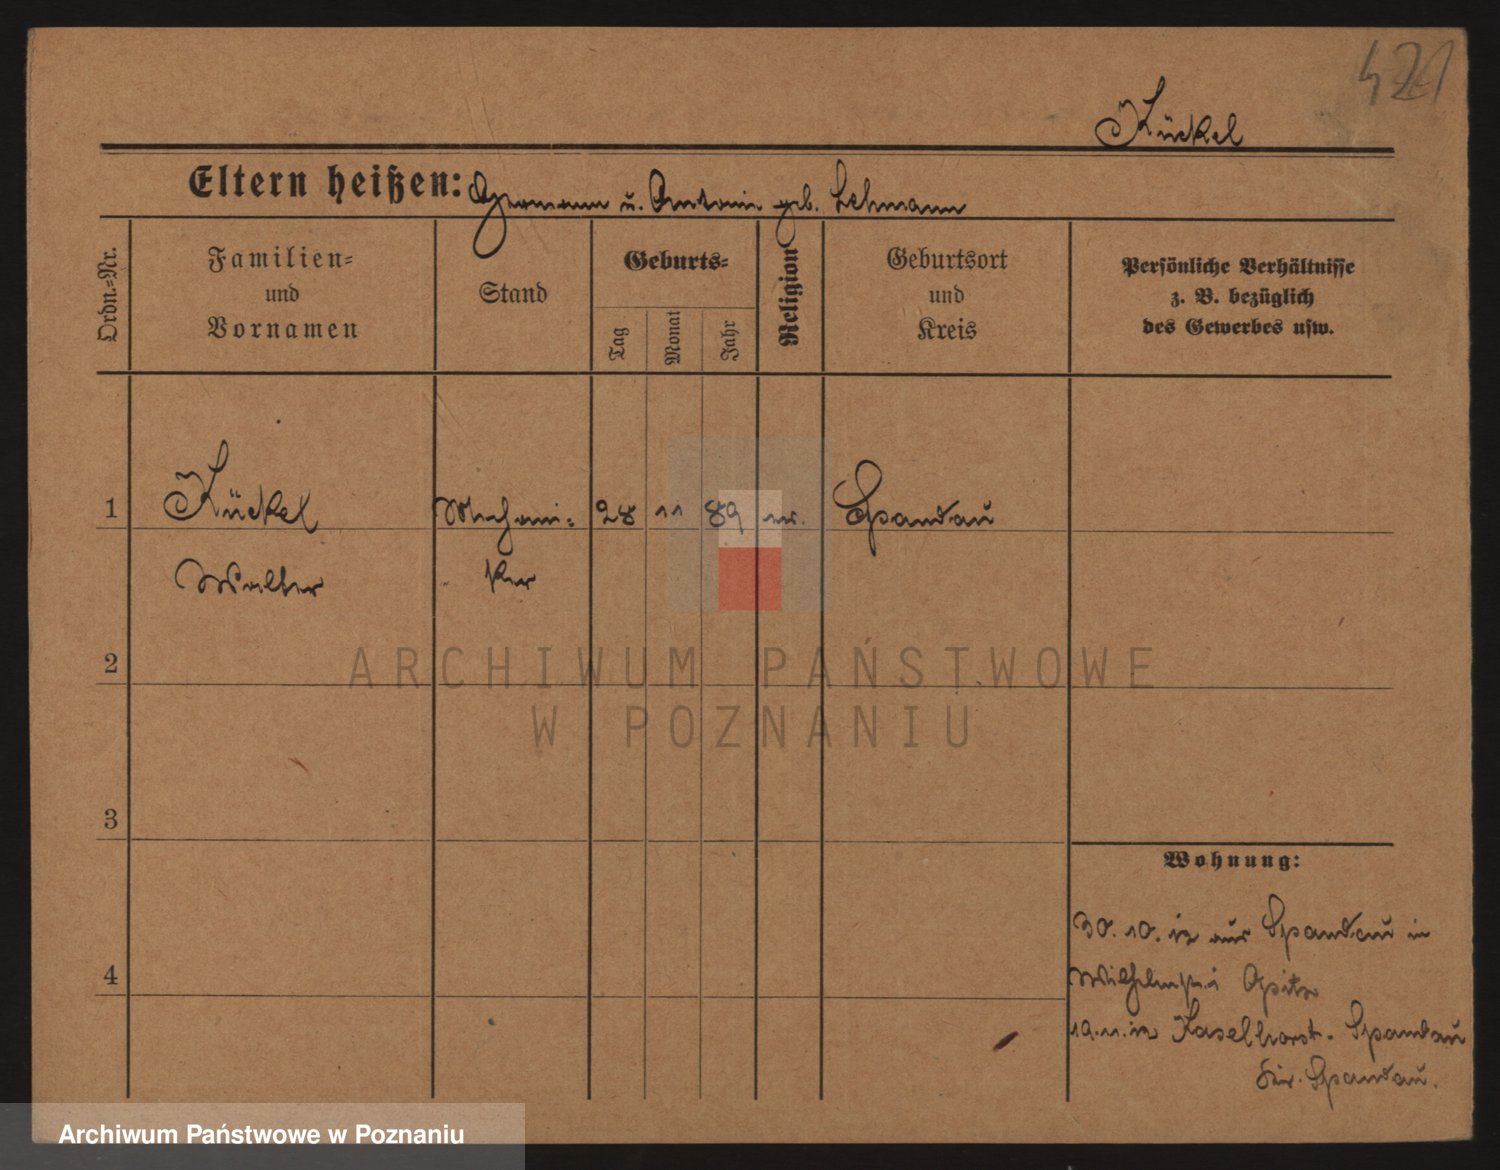 421
Kückel
Eltern heißen: Hermann u. Antonie geb. Lehmann
Ordn.-Nr.
Familien-
und
Vornamen
Stand
Geburts-
Tag
Monat
Jahr
Religion
Geburtsort
und
Kreis
Persönliche Verhältnisse
z. B. bezüglich
des Gewerbes usw.
1 Kückel Mechani- 28 11 89 ev. Spandau
Walter ker
2
3
4
Wohnung:
30.10.12 aus Spandau in
Opitz
19.11.12 Haselhorst. Spandau
Spandau.
ARCHIWUM PAŃSTWOWE
W POZNANIU
Archiwum Państwowe w Poznaniu